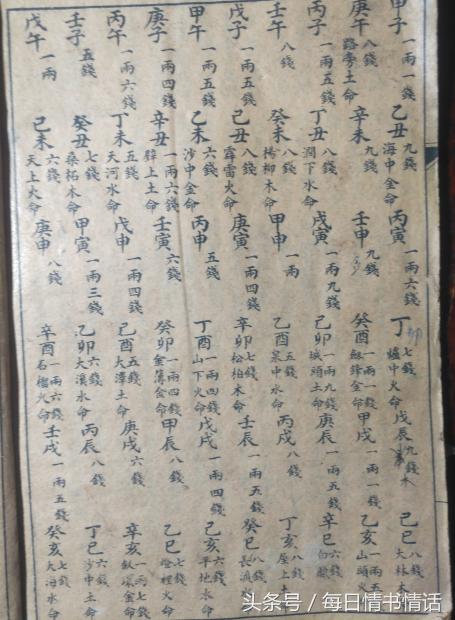 甲子 一兩一錢 乙丑 九錢 海中金命 丙寅 一兩六錢 丁卯 七錢 爐中火命 戊辰 九錢 木 己巳 八錢 大林木
庚午 八錢 路旁土命 辛未 九錢 壬申 九錢 癸酉 一兩一錢 劍鋒金命 甲戌 一兩一錢 乙亥 一兩五 山頭火
丙子 一兩五錢 丁丑 八錢 澗下水命 戊寅 一兩九錢 己卯 一兩九錢 城頭土命 庚辰 一兩五錢 辛巳 六錢 白臘
壬午 八錢 癸未 八錢 楊柳木命 甲申 一兩 乙酉 五錢 泉中水命 丙戌 八錢 丁亥 八錢 屋上土
戊子 一兩五錢 己丑 八錢 霹靂火命 庚寅 一兩四錢 辛卯 七錢 松柏木命 壬辰 一兩五錢 癸巳 八錢 長流
甲午 一兩五錢 乙未 六錢 沙中金命 丙申 五錢 丁酉 一兩四錢 山下火命 戊戌 一兩四錢 己亥 六錢 平地水命
庚子 一兩四錢 辛丑 一兩六錢 壁上土命 壬寅 六錢 癸卯 一兩四錢 金簿金命 甲辰 八錢 乙巳 七錢 燈裡火命
丙午 一兩六錢 丁未 五錢 天河水命 戊申 一兩四錢 己酉 五錢 大澤土命 庚戌 六錢 辛亥 一兩七錢 釵環金命
壬子 五錢 癸丑 七錢 桑柘木命 甲寅 一兩三錢 乙卯 六錢 大溪水命 丙辰 八錢 丁巳 六錢 沙中土命
戊午 一兩 己未 六錢 天上火命 庚申 八錢 辛酉 一兩六錢 石榴火命 壬戌 一兩五錢 癸亥 七錢 大海水命
头条号 / 每日情书情话